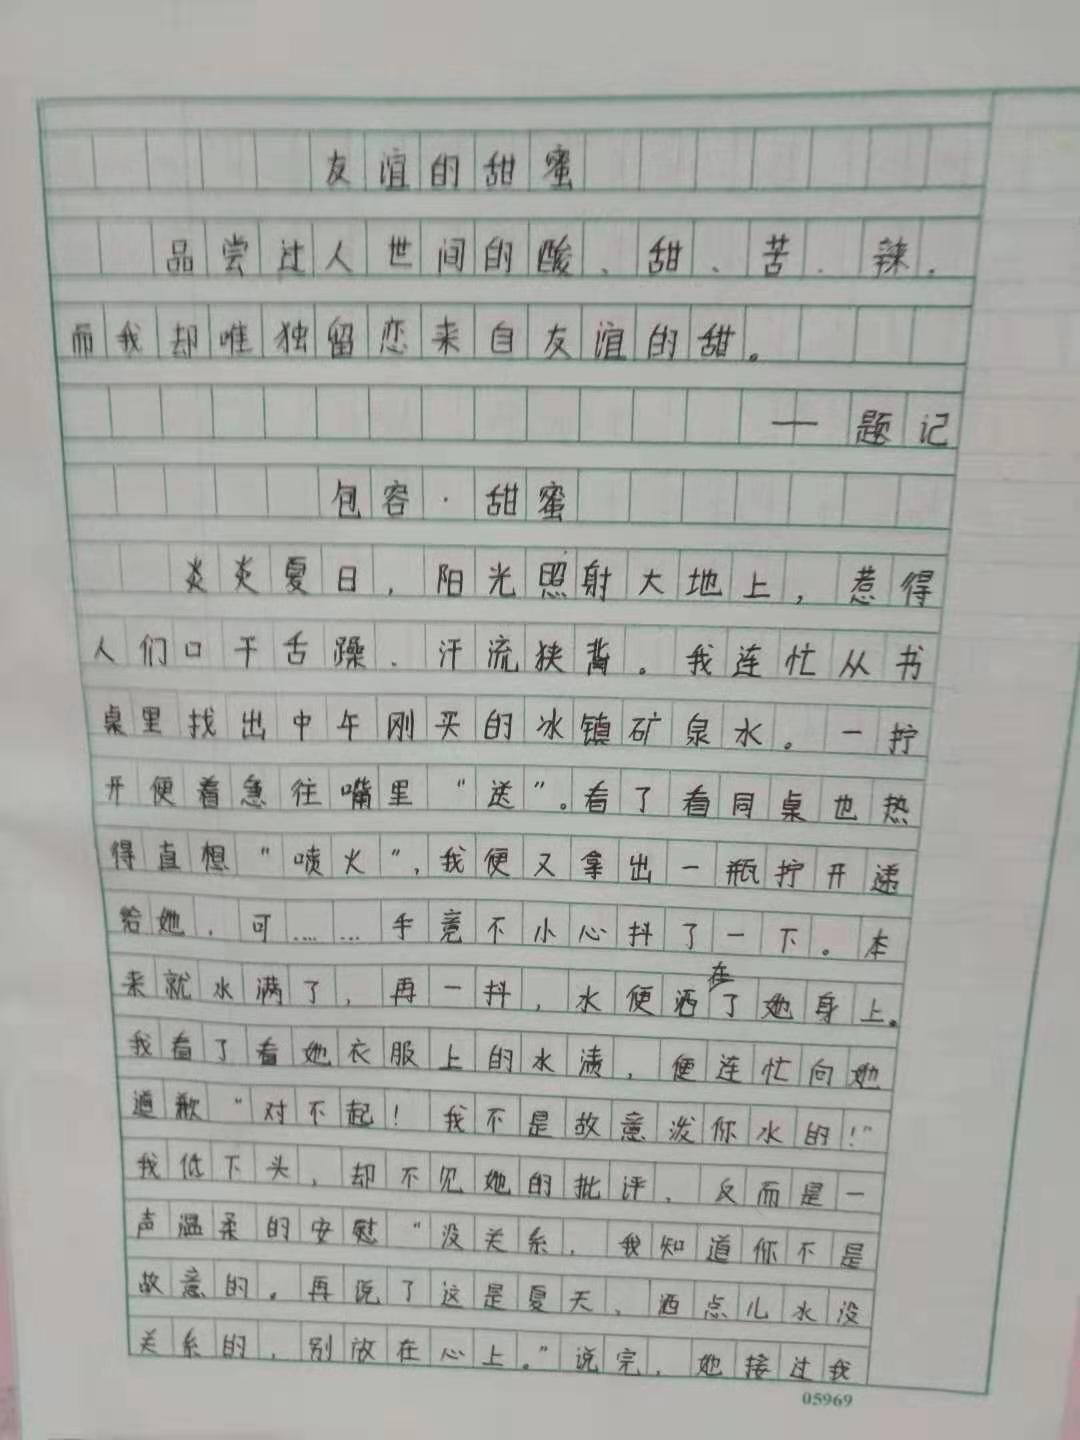 友谊的甜蜜
品尝过人世间的酸、甜、苦、辣，
而我却唯独留恋来自友谊的甜。
——题记
包容·甜蜜
炎炎夏日，阳光照射大地上，惹得
人们口干舌躁、汗流狭背。我连忙从书
桌里找出中午刚买的冰镇矿泉水。一拧
开便着急往嘴里“送”。看了看同桌也热
得直想“喷火”，我便又拿出一瓶拧开递
给她，可……手竟不小心抖了一下。本
来就水满了，再一抖，水便洒在了她身上。
我看了看她衣服上的水渍，便连忙向她
道歉“对不起！我不是故意泼你水的！”
我低下头，却不见她的批评，反而是一
声温柔的安慰“没关系，我知道你不是
故意的。再说了这是夏天，洒点儿水没
关系的，别放在心上。”说完，她接过我
05969